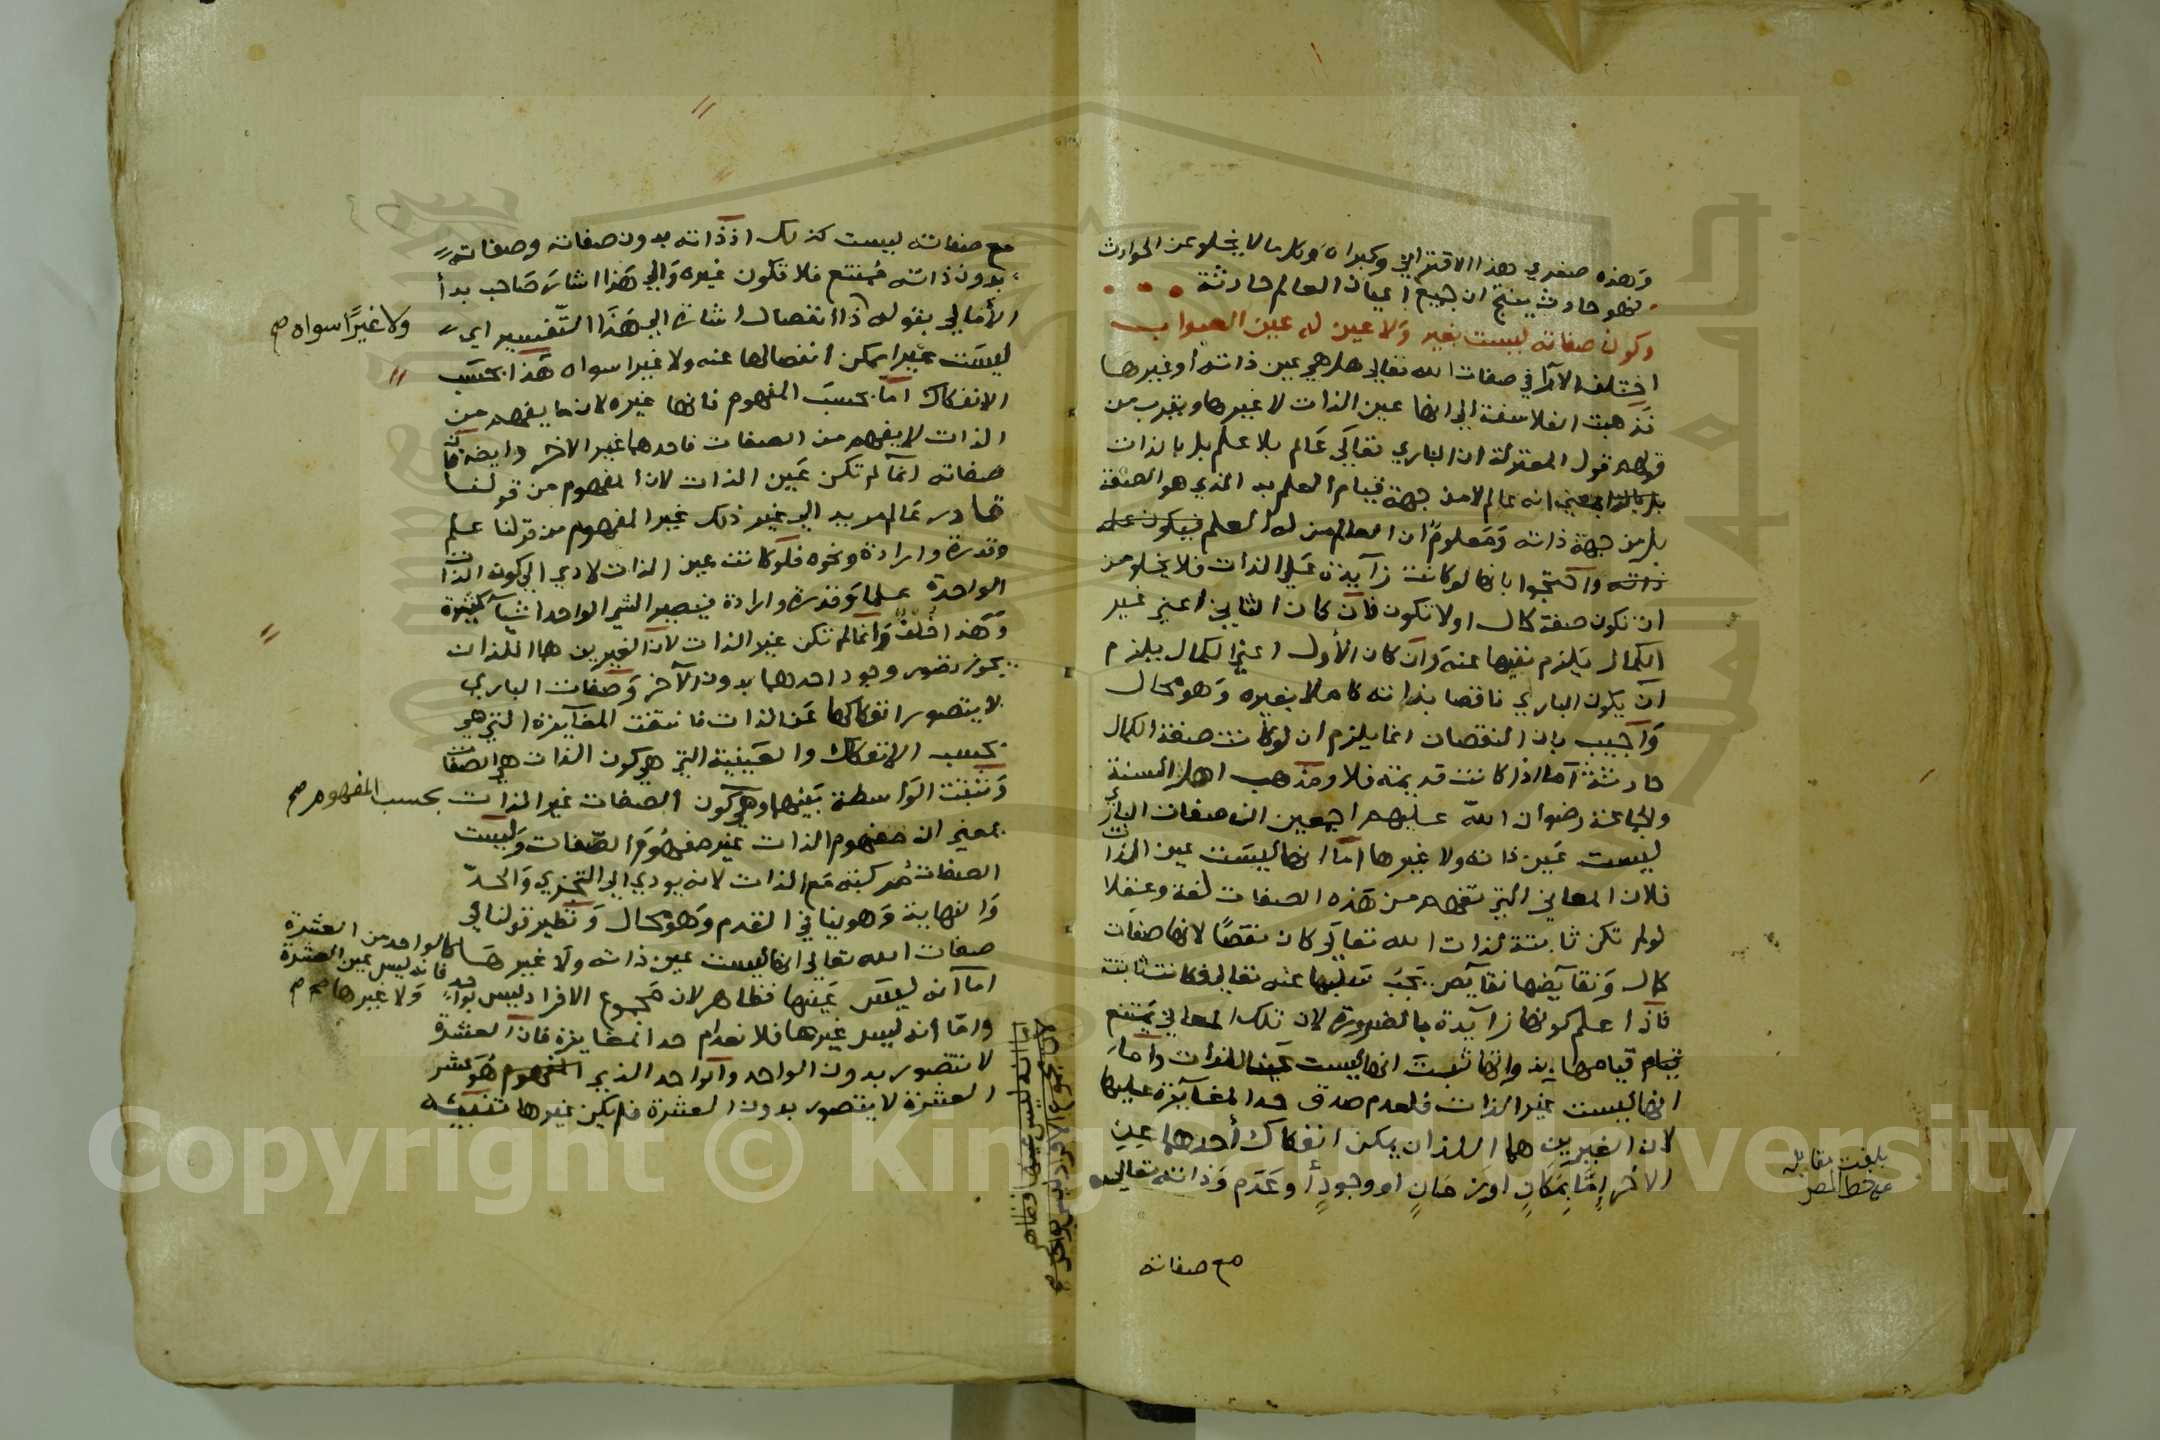 وهذه صغرى هذا الاقتراني وكبراه وكل ما لا يخلو عن الحوادث
فهو حادث ينتج ان جميع اعيان العالم حادثة
وكون صفاته ليست بغير ولا عين له عين الصواب
اختلف الآرآ في صفات الله تعالى هل هي عين ذاته أو غيرها
فذهبت الفلاسفة الى انها عين الذات لا غيرها ويقرب من
قولهم قول المعتزلة ان الباري تعالى عالم بلا علم بل بالذات
بل بالذات بمعنى انه عالم لا من جهة قيام العلم به الذي هو الصفة
بل من جهة ذاته ومعلوم ان العالم من له العلم فيكون علمه
ذاته واحتجوا بانها لو كانت زآيدة على الذات فلا يخلو من
ان تكون صفة كمال اولا تكون فان كان الثاني اعني غير
الكمال يلزم نفيها عنه وان كان الأول اعني الكمال يلزم
ان يكون الباري ناقصا بذاته كاملا بغيره وهو محال
واجيب بان النقصان انما يلزم ان لو كانت صفة الكمال
حادثة اما اذا كانت قديمة فلا ومذهب اهل السنة
والجماعة رضوان الله عليهم اجمعين ان صفات الباري
ليست عين ذاته ولا غيرها اما انها ليست عين الذات
فلان المعاني التي تفهم من هذه الصفات لغة وعقلا
لو لم تكن ثابتة لذات الله تعالى كان نقصا لانها صفات
كمال ونقآيضها نقآيص يجب سلبها عنه تعالى فكانت ثابتة
فاذا علم كونها زآيدة بالضرورة لان تلك المعاني يمتنع
قيام قيامها به وانها ثبتت انها ليست عين الذات واما
انها ليست غير الذات فلعدم صدق حد المغآيرة عليها
لان الغيرين هما اللذان يمكن انفكاك أحدهما عين
الاخر إما بمكان او زمان او وجود أو عدم وذاته تعالى
مع صفاته
بلغت مقابلة
على خط المص
مع صفاته ليست كذلك اذ ذاته بدون صفاته وصفاته
بدون ذاته ممتنع فلا تكون غيره والى هذا اشار صاحب بدأ
الأمالي بقوله ذا انفصال اشارة الى هذا التفسير اي
ولا غيرًا سواه صح
ليست غيرا يمكن انفصالها عنه ولا غيرا سواه هذا بحسب
الانفكاك امّا بحسب المفهوم فانها غيره لان ما يفهم من
الذات لا يفهم من الصفات فاحدهما غير الاخر وايضا
صفاته انما لم تكن عين الذات لان المفهوم من قولنا
قادر عالم مريد الى غير ذلك غير المفهوم من قولنا علم
وقدرة وارادة ونحوه فلو كانت عين الذات لادى الى كون الذات
الواحدة علما وقدرة وارادة فيصير الشي الواحد اشيآ كثيرة
وهذا خلف وانما لم تكن غير الذات لان الغيرين هما اللذان
يجوز تصور وجود احدهما بدون الآخر وصفات الباري
لا يتصور انفكاكها عن الذات فانتفت المغآيرة التي هي
بحسب الانفكاك والعينية التي هو كون الذات هي الصفات
وثبتت الواسطة بينهما وهو كون الصفات غير الذات
بحسب المفهوم صح
بمعنى ان مفهوم الذات غير مفهوم الصّفات وليست
الصفات مركبة مع الذات لانه يودي الى التجزي والحدّ
والنهاية وهو ينافي القدم وهو محال ونظير قولنا في
صفات الله تعالى انها ليست عين ذاته ولا غيرها
كالواحد من العشرة
فانه ليس عين العشرة
ولا غيرها صح
اما انه ليس عينها فظاهر لان مجموع الافراد ليس بواحد
وامّا أنه ليس غيرها فلا نعدام حد المغايرة فان العشرة
لا تتصور بدون الواحد والواحد الذي المفهوم هو عشر
العشرة لا يتصور بدون العشرة فلم يكن غيرها تنبيه
اما انه ليس عينها فظاهر
لان مجموع الافراد ليس بواحد صح